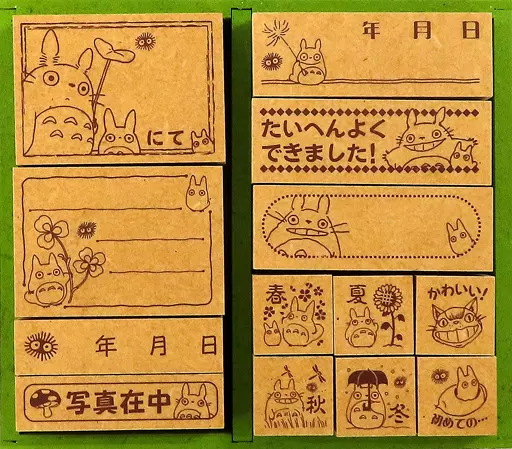 にて
年 月 日
写真在中
年 月 日
たいへんよく
できました!
春
夏
かわいい!
秋
冬
初めての…